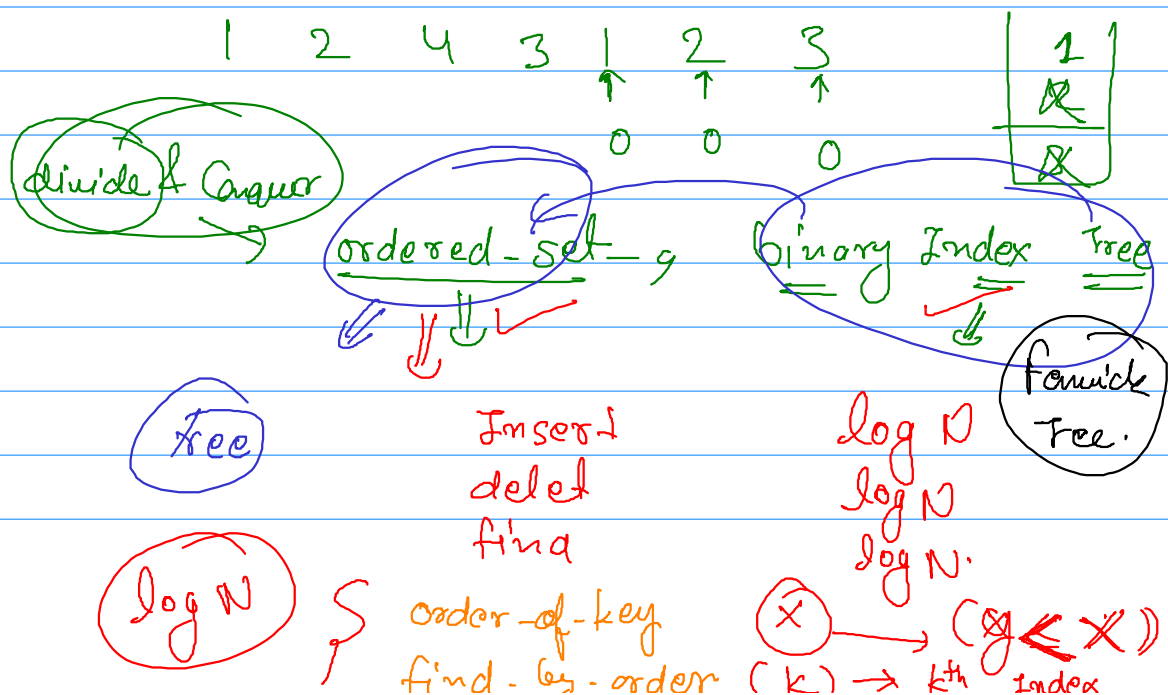 1 2 4 3 1 2 3 1
0 0 0
divide & Conquer
ordered_set_, binary Index Tree
Fenwick
Tree.
Tree Insert log N
delet log N
find log N.
log N order_of_key X → (y < X)
find_by_order (k) → kth Index